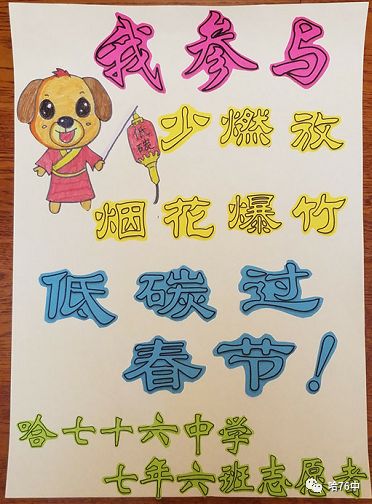 我参与
少燃放
低碳
烟花爆竹
低碳过
春节！
哈七十六中学
七年六班志愿者
哈76中